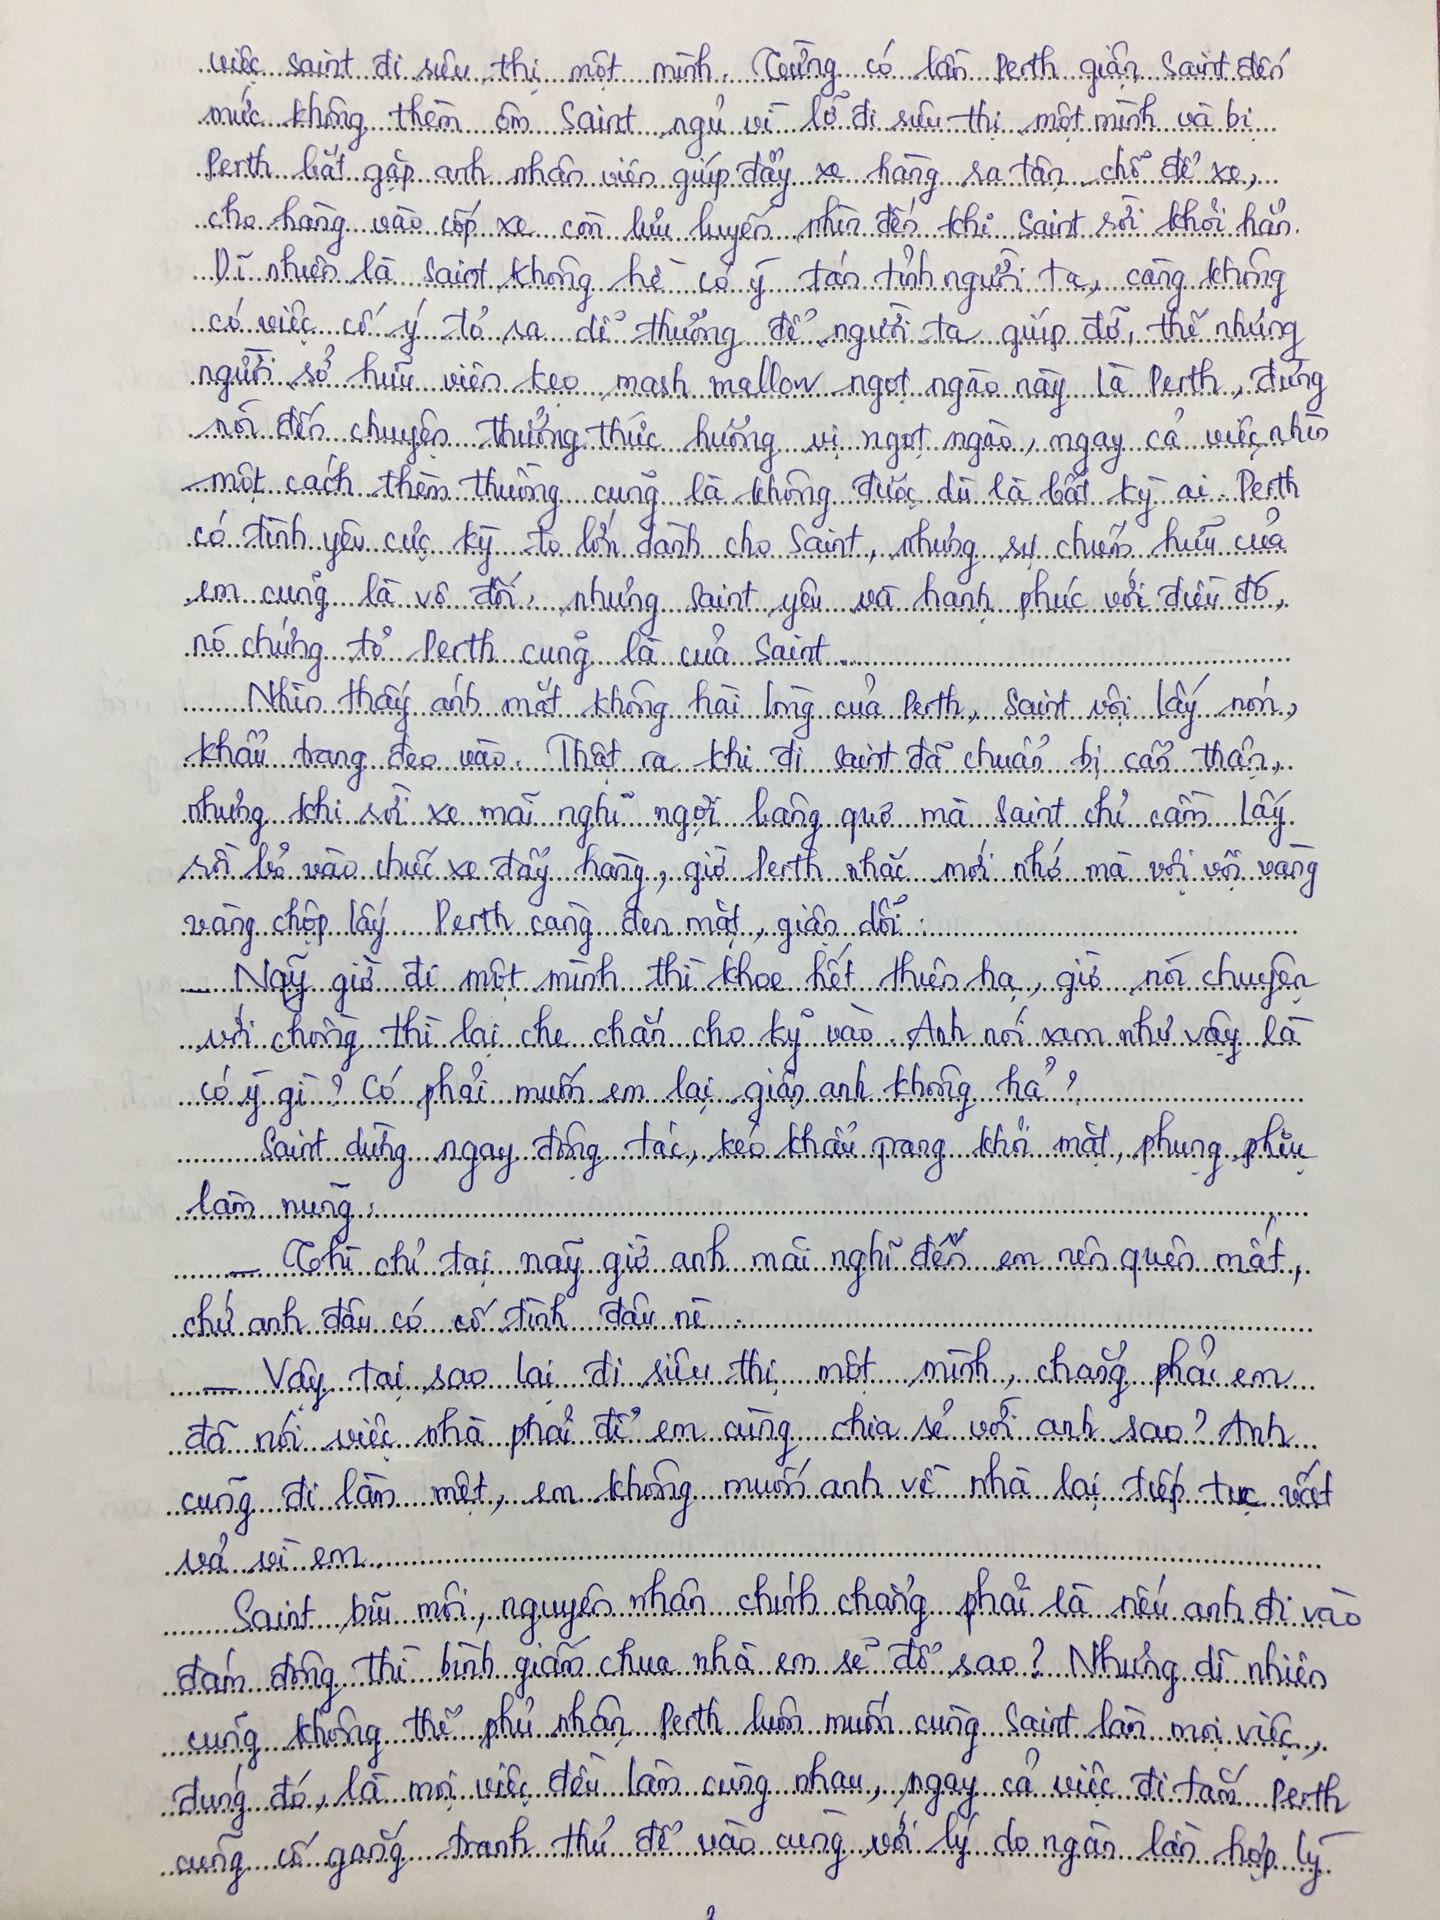 việc saint đi siêu thị một mình. Từng có lần Perth giận Saint đến
mức không thèm ôm Saint ngủ vì lỡ đi siêu thị một mình và bị
Perth bắt gặp anh nhân viên giúp đẩy xe hàng ra tận chỗ để xe,
cho hàng vào cốp xe còn lưu luyến nhìn đến khi Saint rời khỏi hẳn.
Dĩ nhiên là Saint không hề có ý tán tỉnh người ta, càng không
có việc cố ý tỏ ra dễ thương để người ta giúp đỡ, thế nhưng
người sở hữu viên kẹo mash mallow ngọt ngào này là Perth, đừng
nói đến chuyện thưởng thức hương vị ngọt ngào, ngay cả việc nhìn
một cách thèm thuồng cũng là không được dù là bất kỳ ai. Perth
có tình yêu cực kỳ to lớn dành cho Saint, nhưng sự chiếm hữu của
em cũng là vô đối, nhưng Saint yêu và hạnh phúc với điều đó,
nó chứng tỏ Perth cũng là của Saint.
Nhìn thấy ánh mắt không hài lòng của Perth, Saint vội lấy nón,
khẩu trang đeo vào. Thật ra khi đi saint đã chuẩn bị cẩn thận,
nhưng khi rời xe mãi nghĩ ngợi bâng quơ mà Saint chỉ cầm lấy
rồi bỏ vào chiếc xe đẩy hàng, giờ Perth nhắc mới nhớ mà vội vội vàng
vàng chộp lấy. Perth càng đen mặt, giận dỗi:
— Nãy giờ đi một mình thì khoe hết thiên hạ, giờ nói chuyện
với chồng thì lại che chắn cho kỹ vào. Anh nói xem như vậy là
có ý gì? Có phải muốn em lại giận anh không hả?
Saint dừng ngay động tác, kéo khẩu trang khỏi mặt, phụng phịu
làm nũng:
— Thì chỉ tại nãy giờ anh mãi nghĩ đến em nên quên mất,
chứ anh đâu có cố tình đâu nè.
— Vậy tại sao lại đi siêu thị một mình, chẳng phải em
đã nói việc nhà phải để em cùng chia sẻ với anh sao? Anh
cũng đi làm mệt, em không muốn anh về nhà lại tiếp tục vất
vả vì em.
Saint bĩu môi, nguyên nhân chính chẳng phải là nếu anh đi vào
đám đông thì bình giấm chua nhà em sẽ đổ sao? Nhưng dĩ nhiên
cũng không thể phủ nhận Perth luôn muốn cùng Saint làm mọi việc,
đúng đó, là mọi việc đều làm cùng nhau, ngay cả việc đi tắm Perth
cũng cố gắng tranh thủ để vào cùng với lý do ngàn lần hợp lý